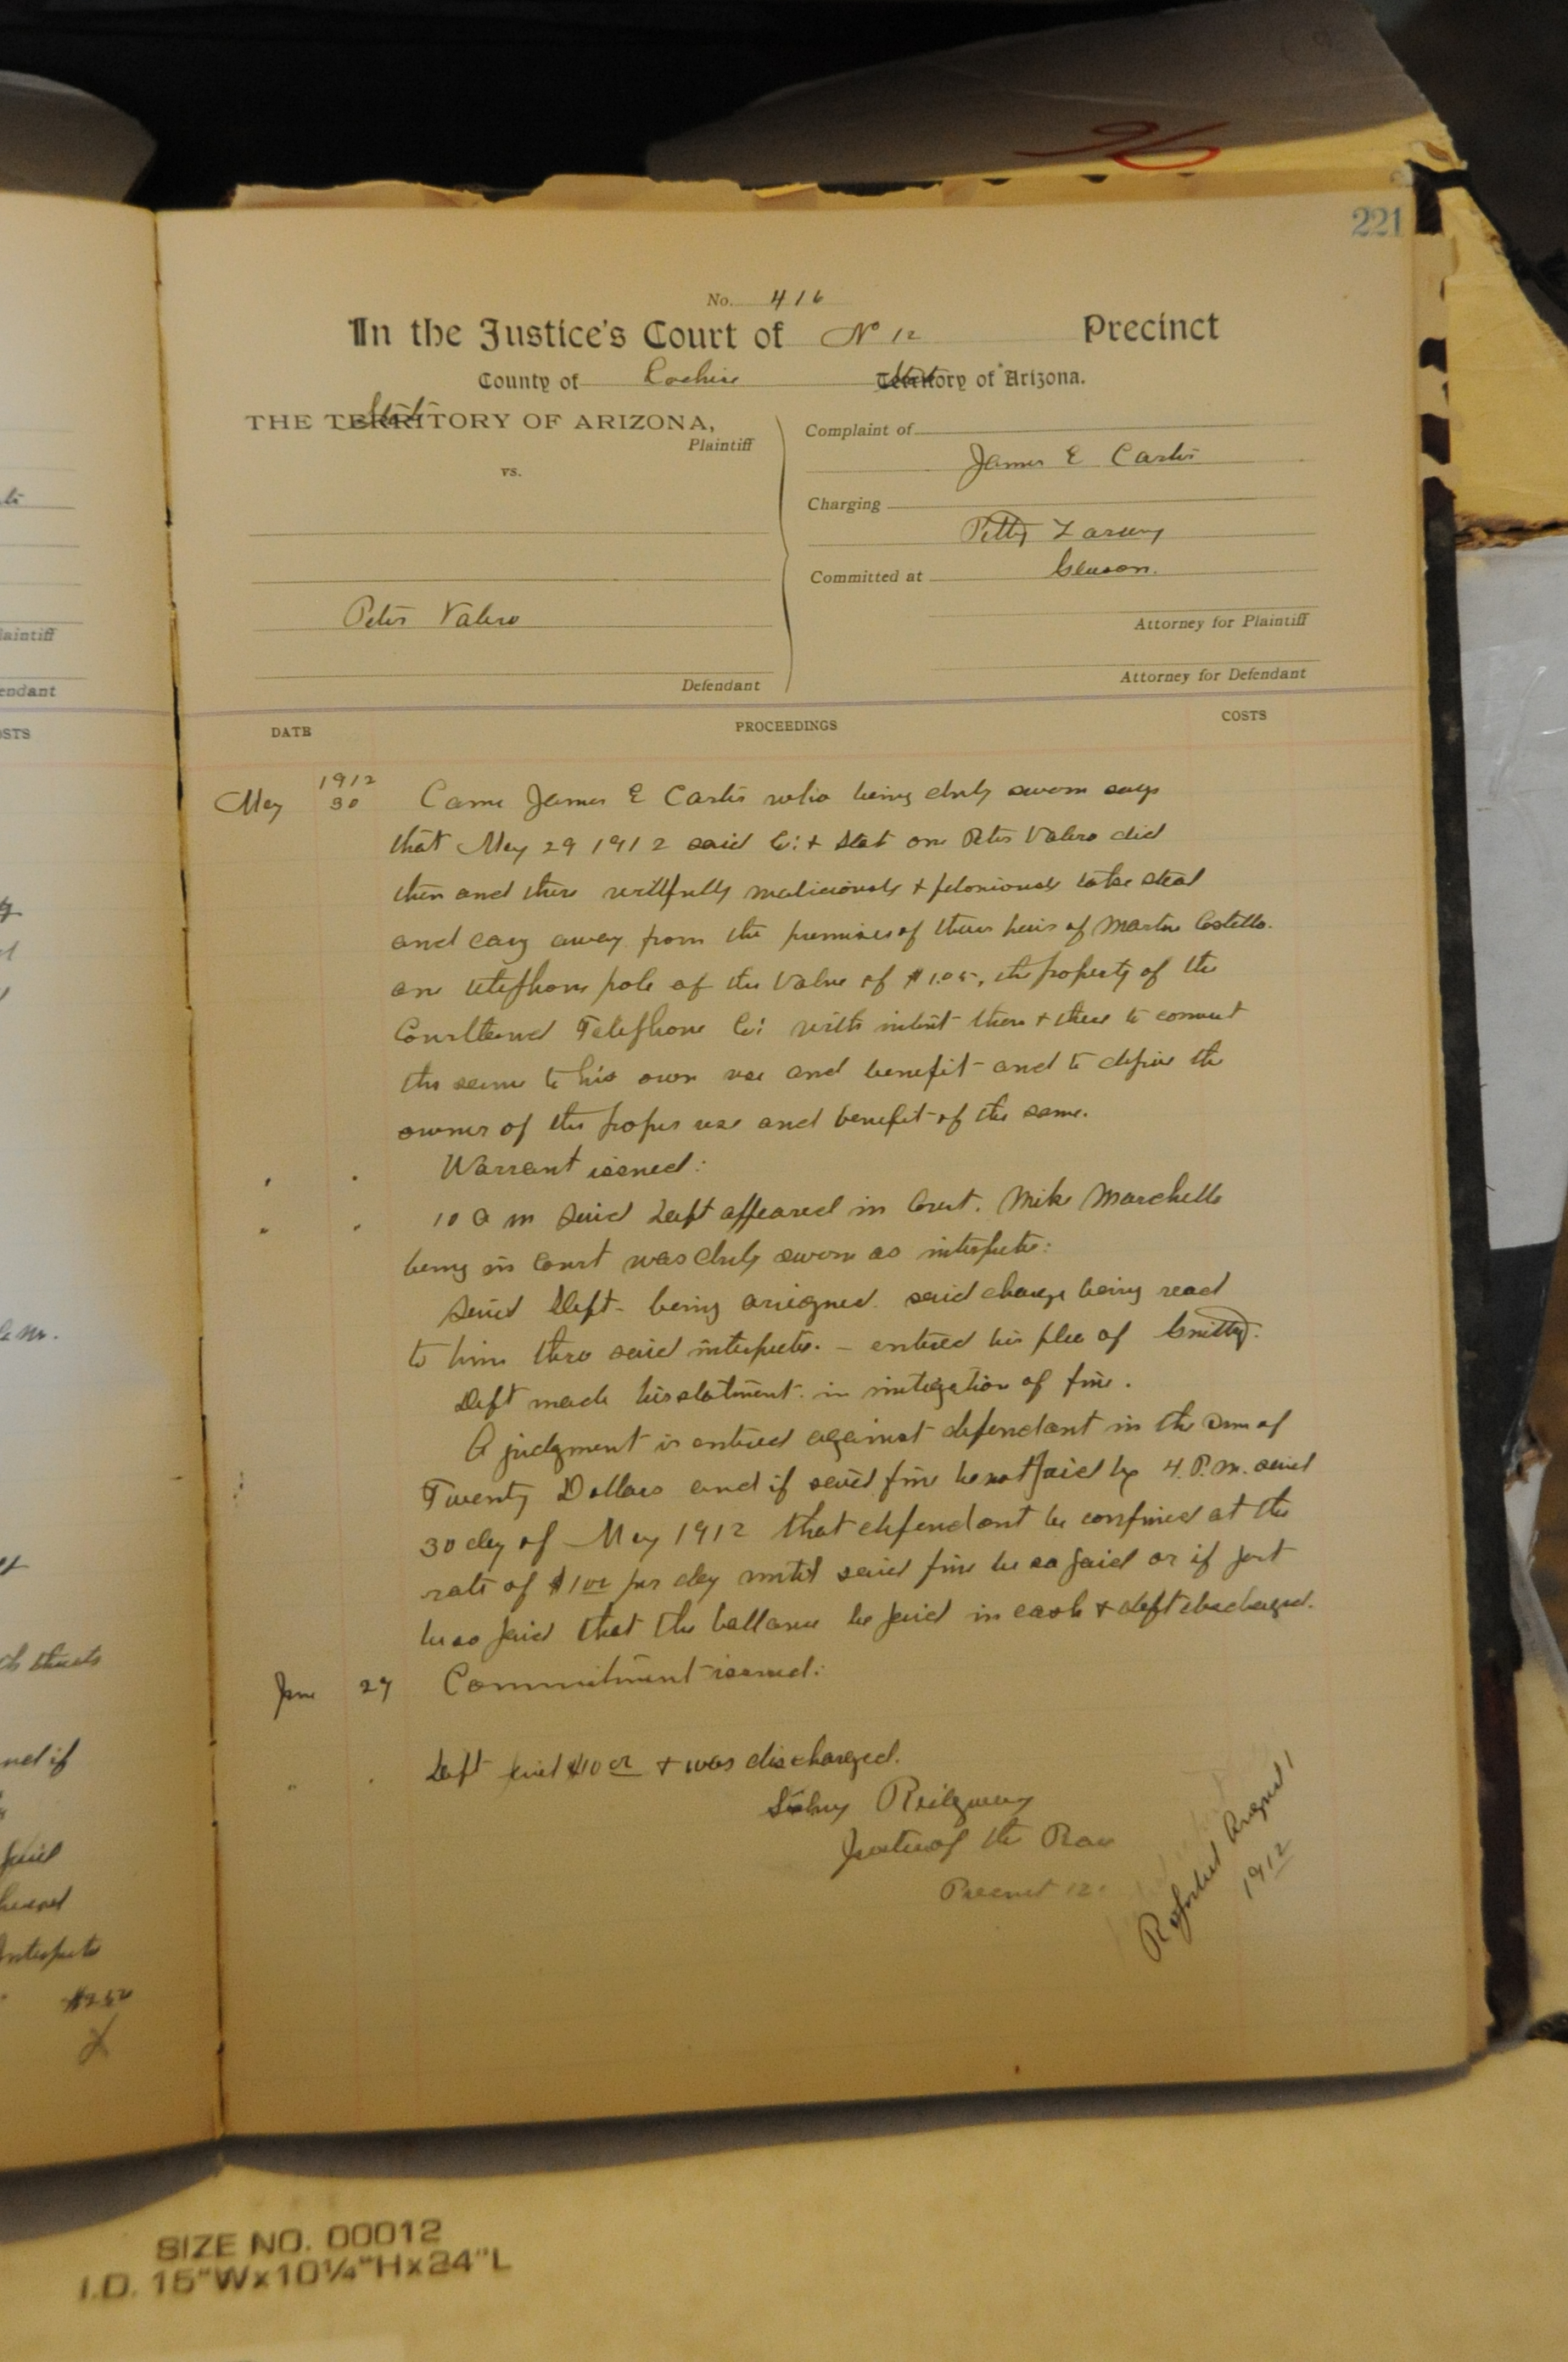 96
221
No. 416
In the Justice's Court of No 12 Precinct
County of Cochise State Territory of Arizona.
THE State TERRITORY OF ARIZONA,
Plaintiff
vs.
Peter Valero
Defendant
Complaint of
James E Carter
Charging
Petty Larceny
Committed at Gleeson.
Attorney for Plaintiff
Attorney for Defendant
DATE PROCEEDINGS COSTS
1912
May 30 Came James E Carter who being duly sworn says
that May 29 1912 said Co: + Stat one Peter Valero did
then and there willfully maliciously + feloniously take steal
and cary away from the premises of of Martin Costello.
one telephone pole of the Value of $1.05, the property of the
Courtland Telephone Co: with intent then + there to convert
the same to his own use and benefit and to deprive the
owner of the proper use and benefit of the same.
" " Warrant issued:
" " 10 a m Said Deft appeared in Court. Mike Marchello
being in Court was duly sworn as interpeter:
Said Deft - being araigned. said charge being read
to him thro said interpeter. - entered his plea of Guilty.
Deft made his statment. in mitigation of fine.
A judgment is entered against defendant in the Sum of
Twenty Dollars and if said fine be not paid by 4. P.M. said
30 day of May 1912 that defendant be confined at the
rate of $1 00 per day until said fine be so paid or if part
be so paid that the ballance be paid in cash + deft discharged.
June 27 Commitment issued:
" " Deft paid $10 00 + was discharged.
Sidny Ridgway
Justice of the Peace
Precinct 12
Reported August 1
1912
aintiff
endant
OSTS
and if
paid
Interpete
$2 50
SIZE NO. 00012
I.D. 15"Wx10¼"Hx24"L